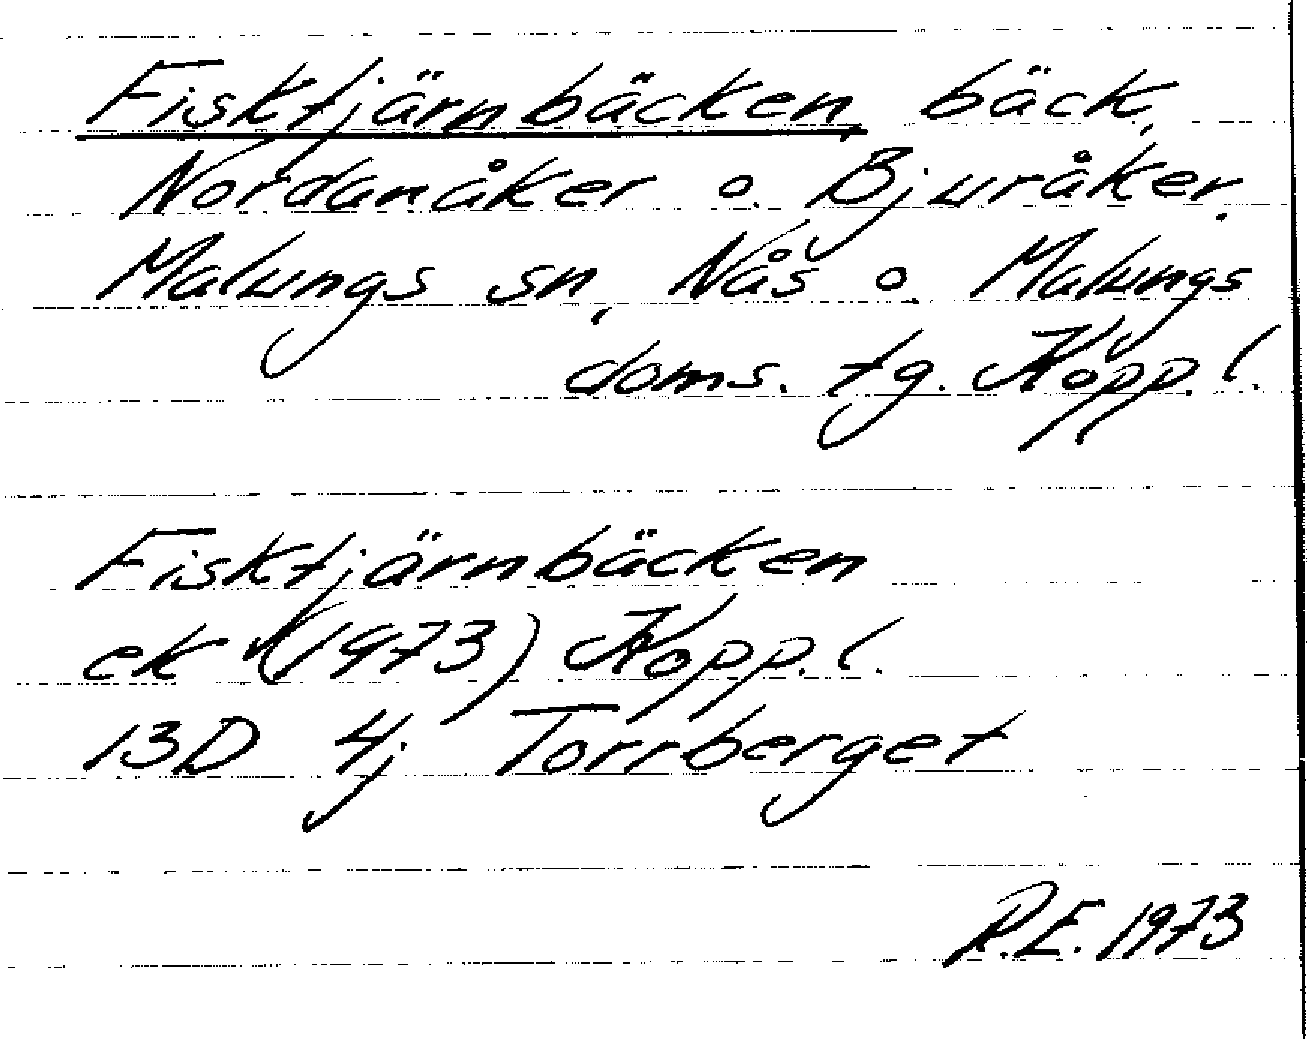 Fisktjärnbäcken, bäck,
Nordanåker o. Bjuråker,
Malungs sn, Nås o. Malungs
doms. tg. Kopp. l.
Fisktjärnbäcken
ek (1973) Kopp. l.
13D 4j Torrberget
R.E. 1973